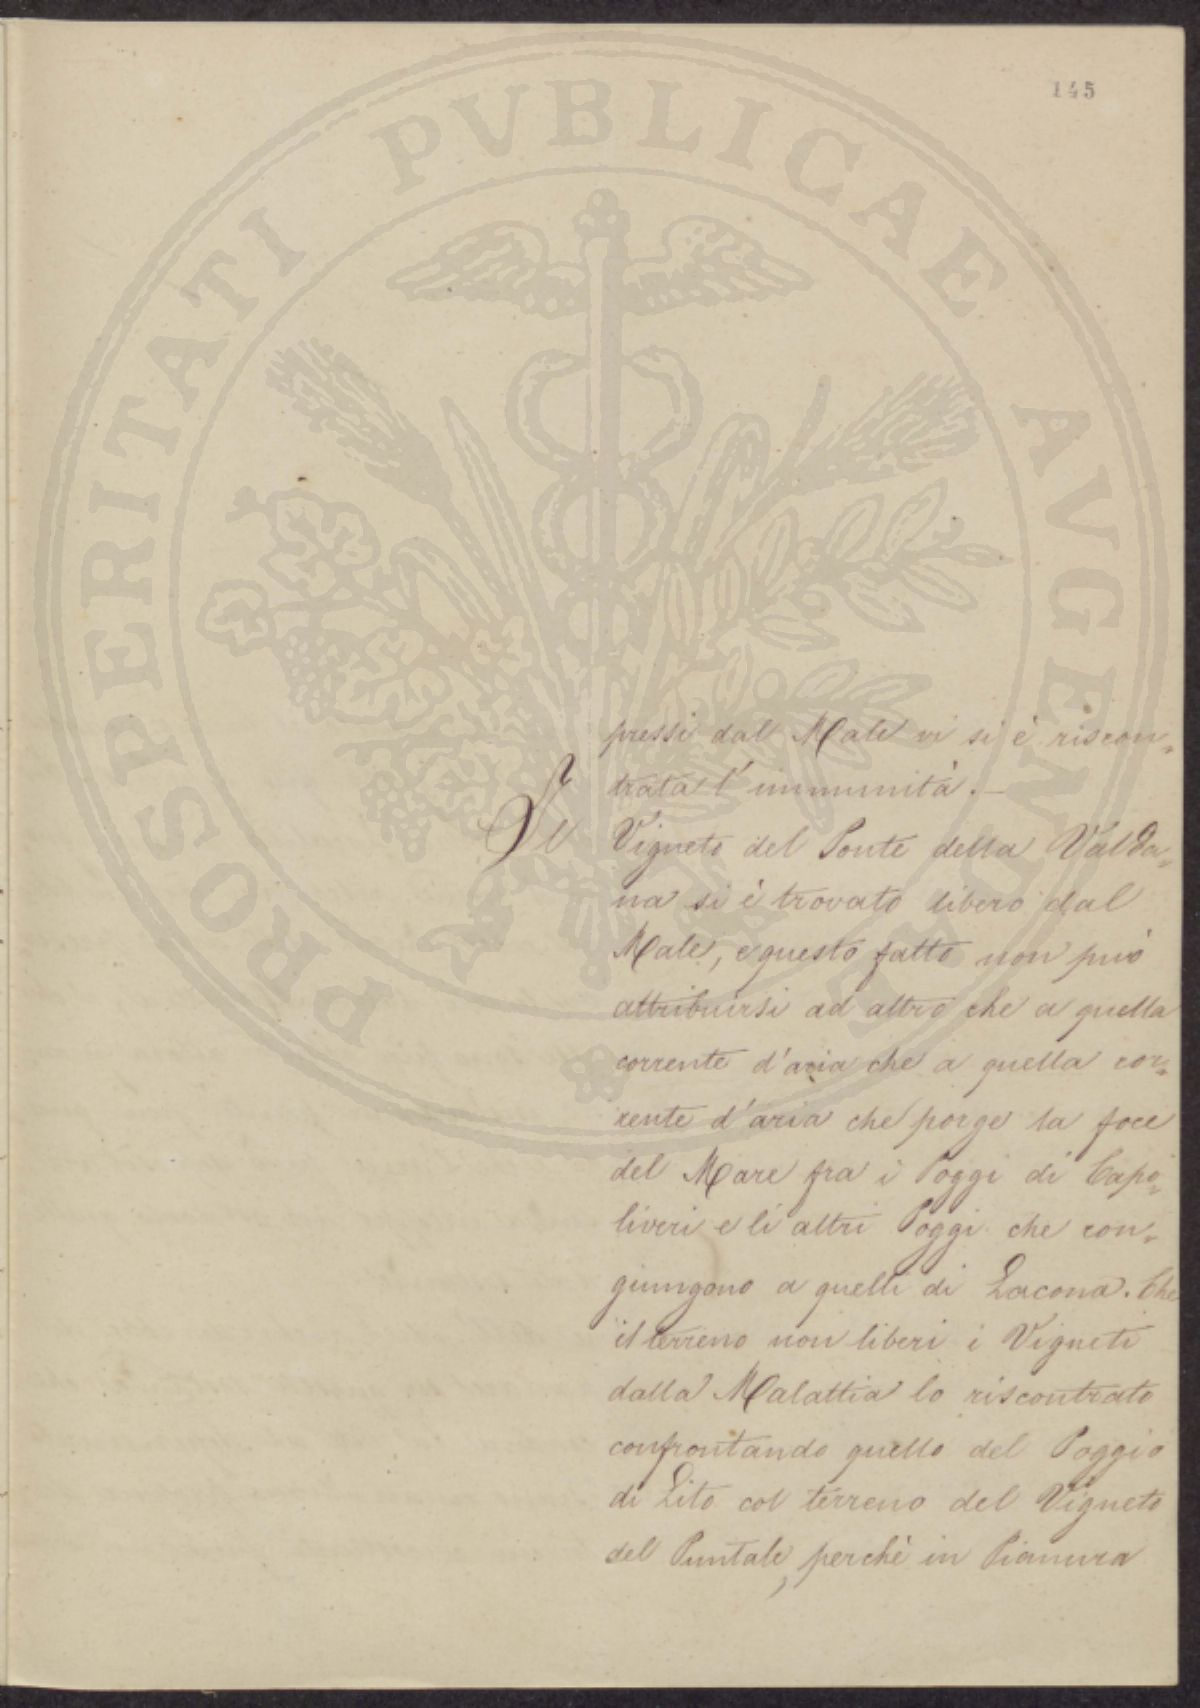 145
PROSPERITATI PVBLICAE AVGENDAE
pressi dal Male vi si è riscon„
trata l'immunità.—
Il Vigneto del Ponte della Valda„
na si è trovato libero dal
Male, e questo fatto non può
attribuirsi ad altro che a quella
corrente d'aria che a quella cor„
rente d'aria che porge la foce
del Mare fra i Poggi di Capo„
liveri e li altri Poggi che con„
giungono a quelli di Lacona. Che
il terreno non liberi i Vigneti
dalla Malattia lo riscontrato
confrontando quello del Poggio
di Lito col terreno del Vigneto
del Puntale, perchè in Pianura